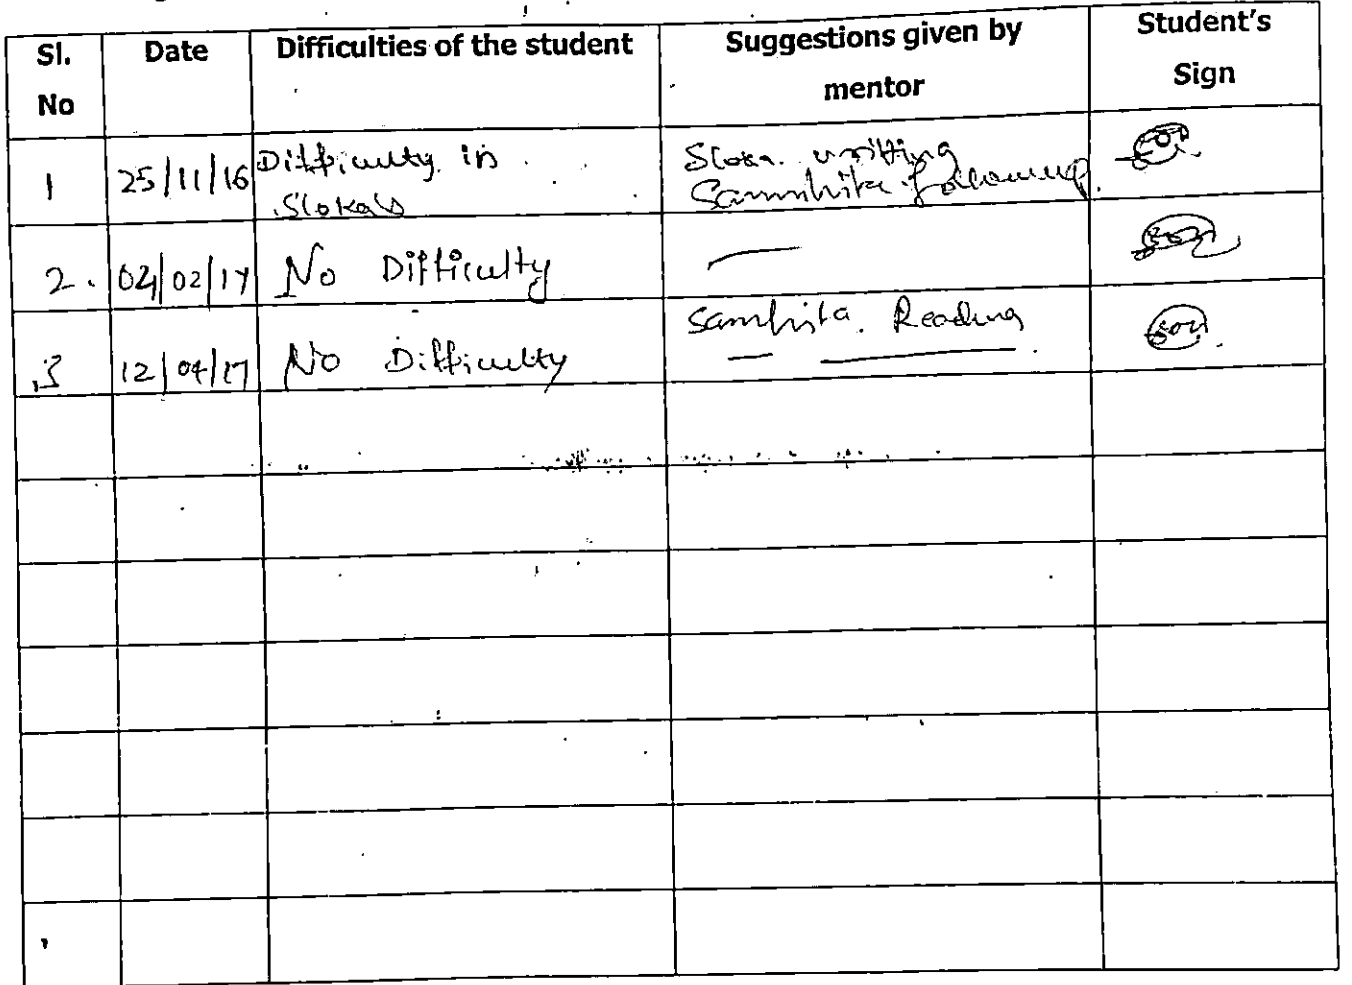 Sl. No | Date | Difficulties of the student | Suggestions given by mentor | Student's Sign
1 | 25/11/16 | Difficulty in Slokals | Sloka. writing Samhita. following.
2. | 02/02/17 | No Difficulty | —
3 | 12/04/17 | No Difficulty | Samhita. Reading